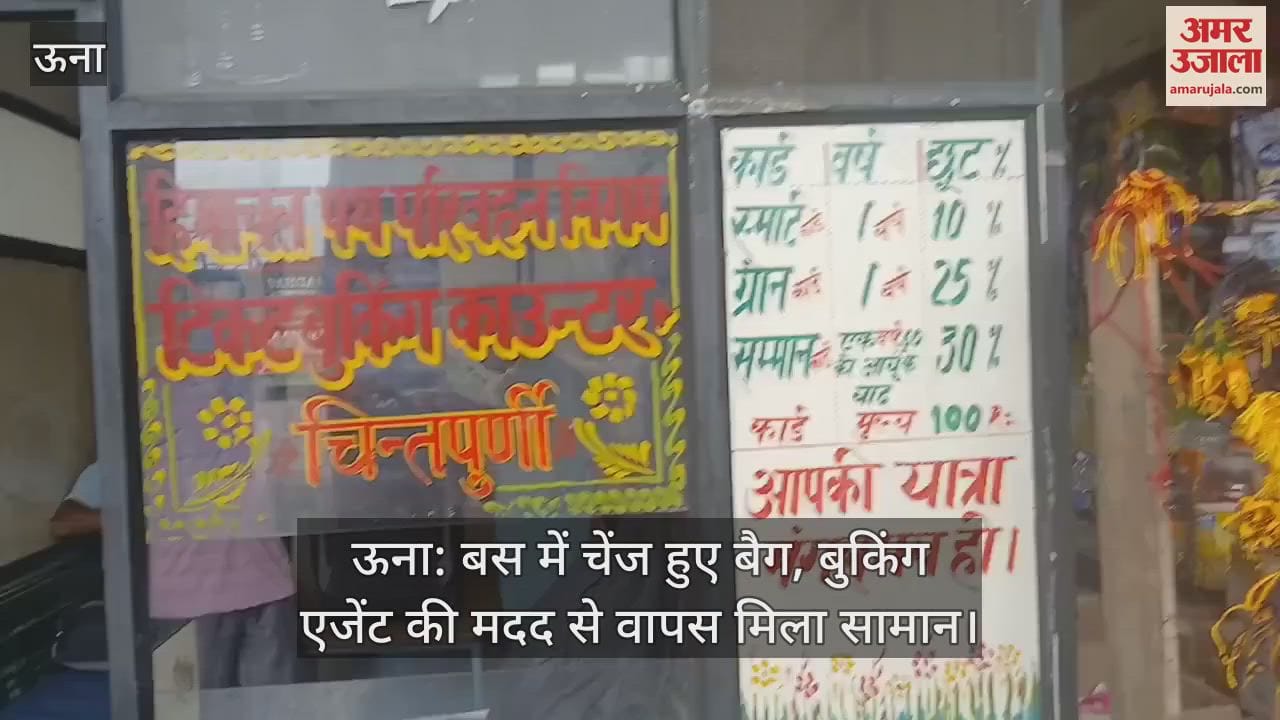 ऊना
अमर
उजाला
amarujala.com
हिमाचल पथ परिवहन निगम
टिकट बुकिंग काउन्टर
चिन्तपुर्णी
कार्ड वर्ष छूट %
स्मार्ट कार्ड 1 वर्ष 10 %
ग्रीन कार्ड 1 वर्ष 25 %
सम्मान 30 %
बाद
कार्ड मूल्य 100 रू:
आपकी यात्रा
मंगलमय हो।
ऊना: बस में चेंज हुए बैग, बुकिंग
एजेंट की मदद से वापस मिला सामान।